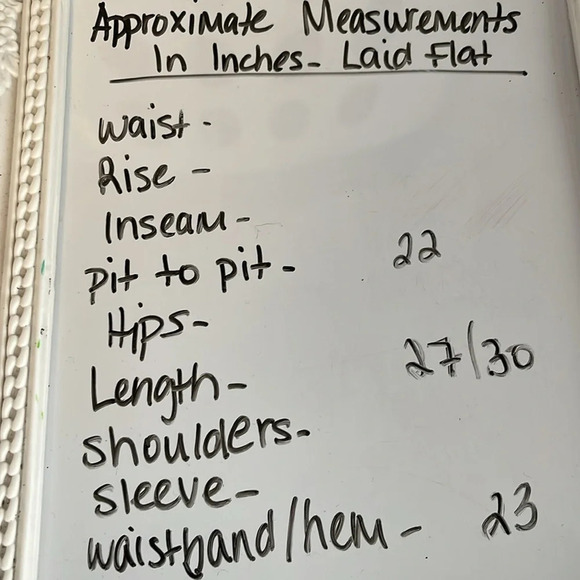 Approximate Measurements
In Inches- Laid Flat
waist -
Rise -
Inseam -
pit to pit - 22
Hips-
Length- 27/30
shoulders-
sleeve-
waistband/hem - 23